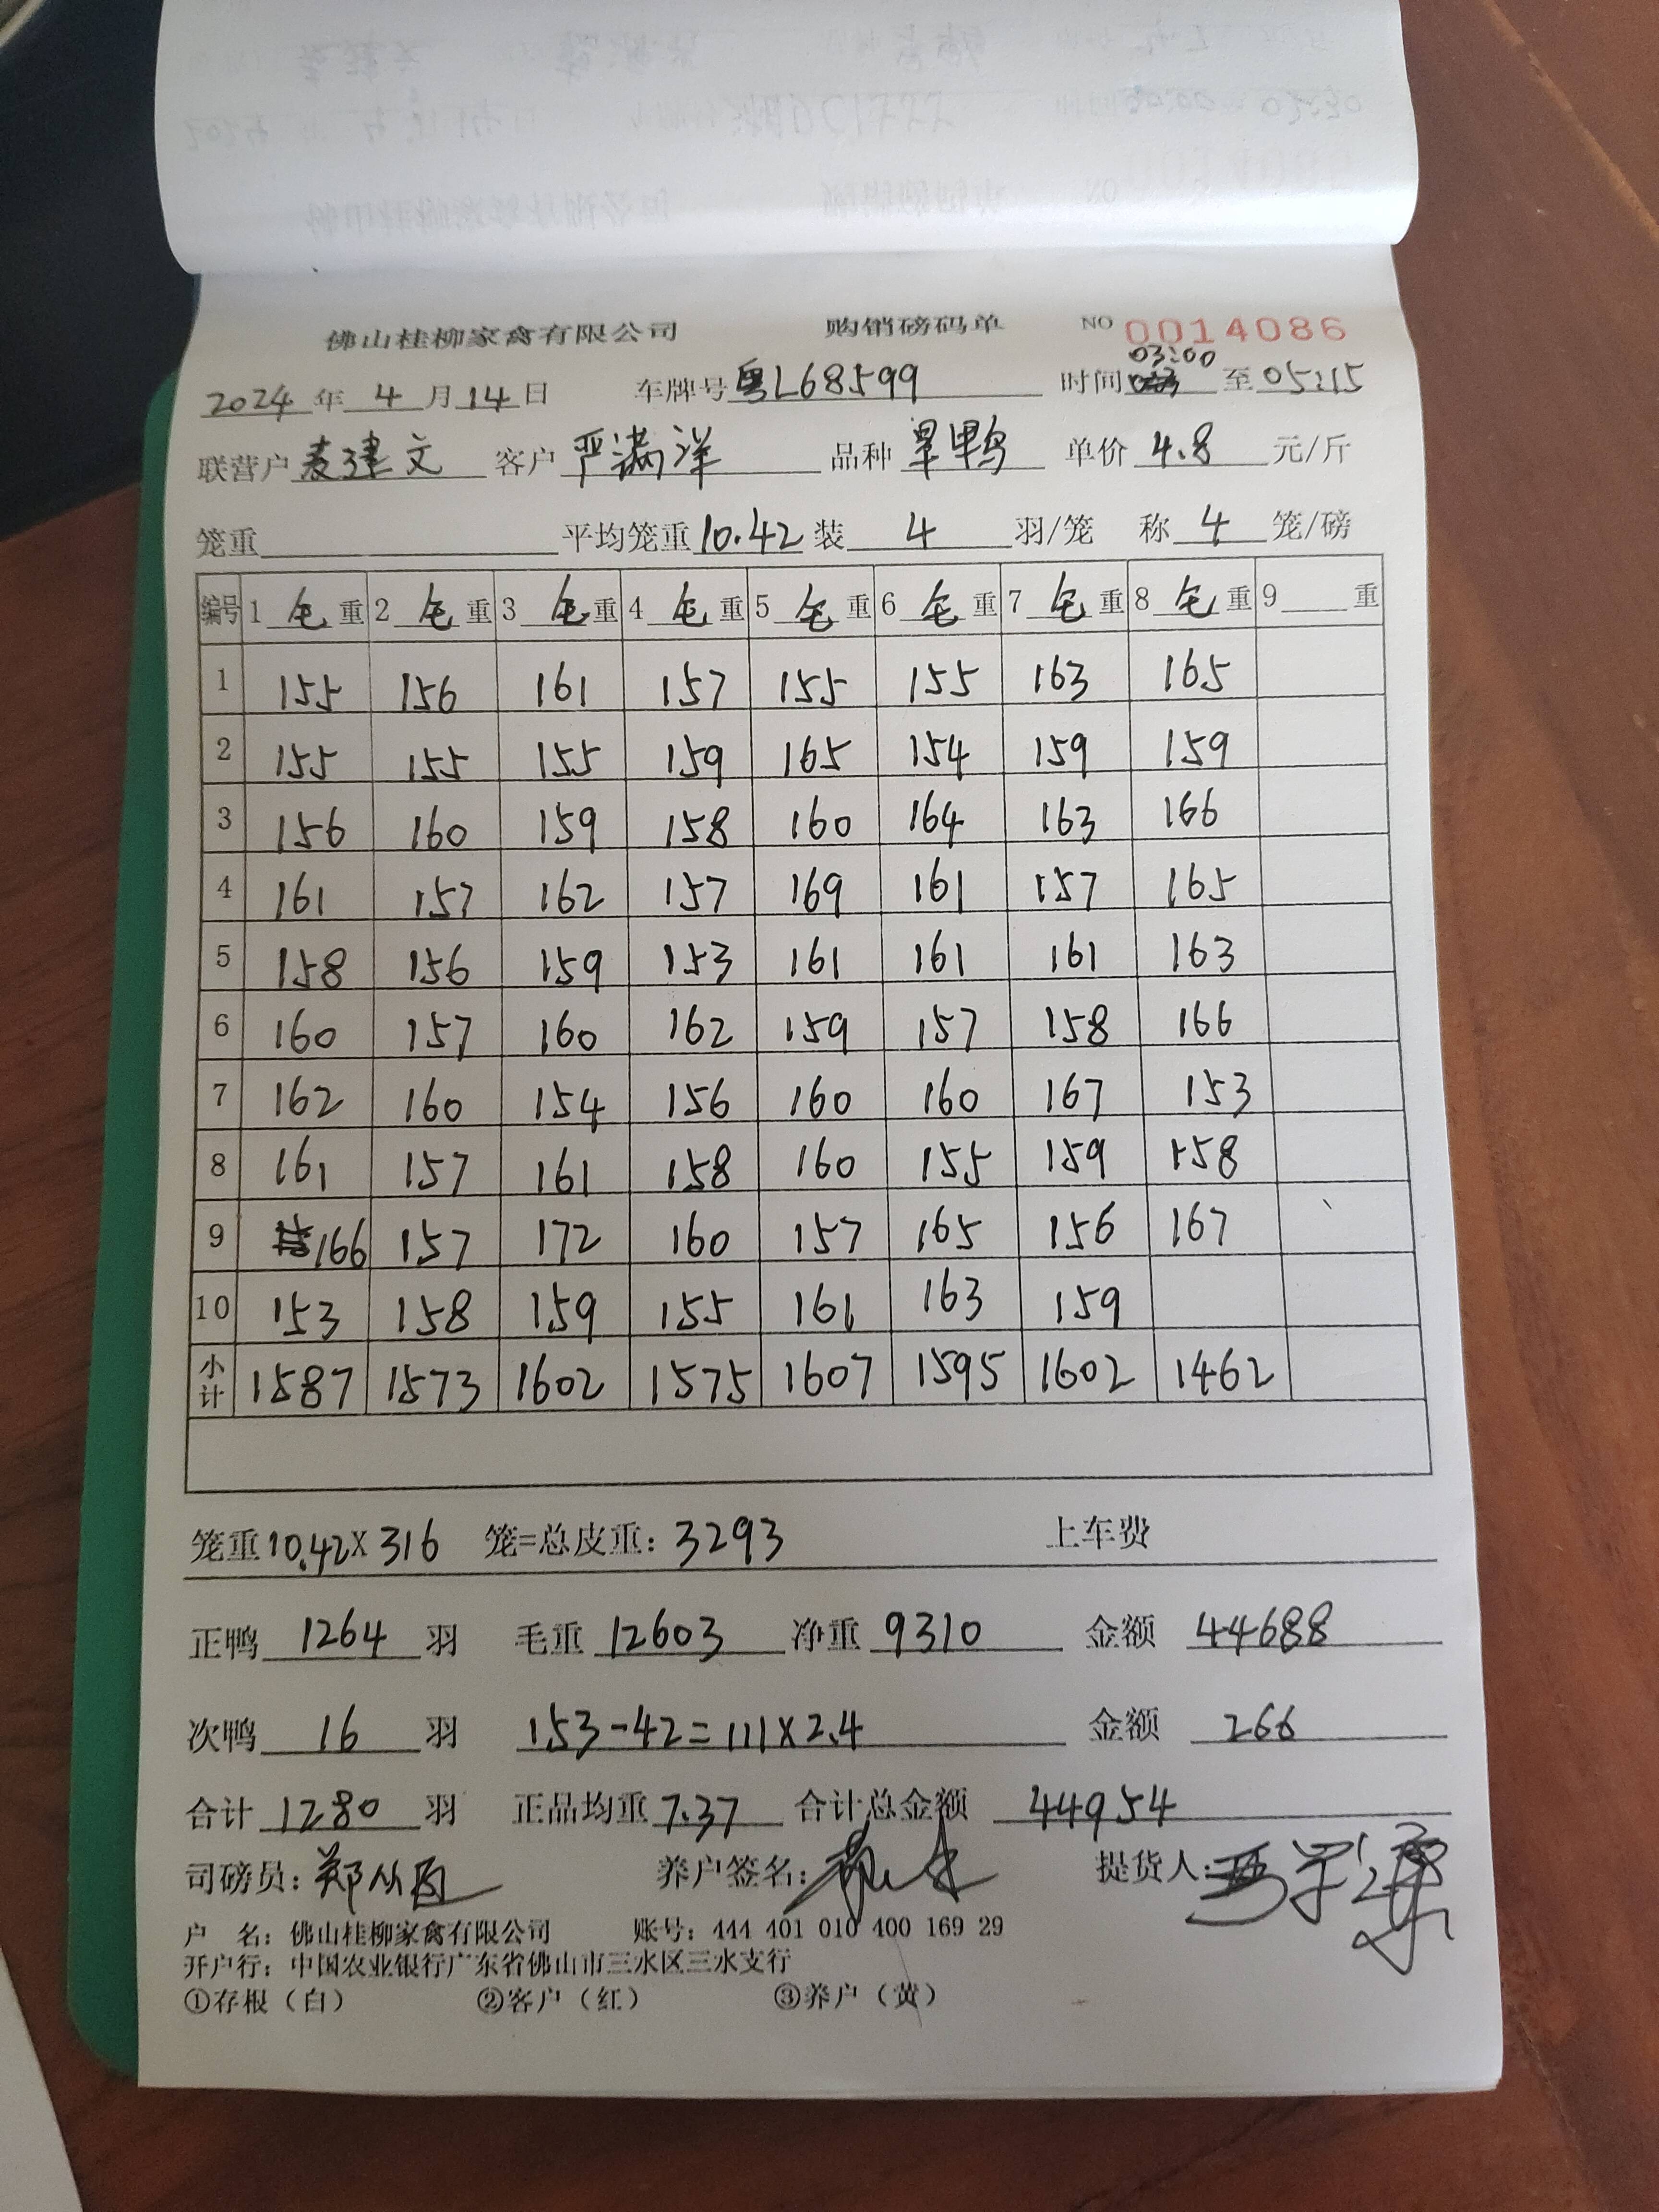 佛山桂柳家禽有限公司 购销磅码单 NO 0014086
03:00
2024年4月14日 车牌号粤L68599 时间 至05:15
联营户麦建文 客户严满洋 品种 单价4.8元/斤
笼重 平均笼重10.42装4羽/笼 称4笼/磅
编号 1毛重 2毛重 3毛重 4毛重 5毛重 6毛重 7毛重 8毛重 9 重
1 155 156 161 157 155 155 163 165
2 155 155 155 159 165 154 159 159
3 156 160 159 158 160 164 163 166
4 161 157 162 157 169 161 157 165
5 158 156 159 153 161 161 161 163
6 160 157 160 162 159 157 158 166
7 162 160 154 156 160 160 167 153
8 161 157 161 158 160 155 159 158
9 166 157 172 160 157 165 156 167
10 153 158 159 155 161 163 159
小计 1587 1573 1602 1575 1607 1595 1602 1462
笼重10.42×316 笼=总皮重：3293 上车费
正鸭1264羽 毛重12603 净重9310 金额44688
次鸭16羽 153-42=111×2.4 金额266
合计1280羽 正品均重7.37 合计总金额44954
司磅员： 养户签名： 提货人：
户 名：佛山桂柳家禽有限公司 账号：444 401 010 400 169 29
开户行：中国农业银行广东省佛山市三水区三水支行
①存根（白） ②客户（红） ③养户（黄）